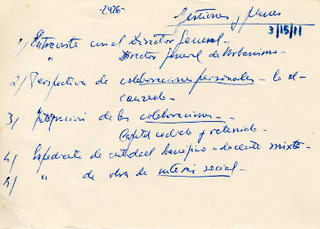 -2426-
Gestiones y planes
3/15/11
1) Entrevista con el Director General-
" Director General de Urbanismo-
2) Perspectiva de colaboraciones personales - lo al-
canzado-
3) de las colaboraciones-
Capital cedido y retenido-
4) Expediente de entidad benéfico-docente mixta-
5) " de obra de interés social-